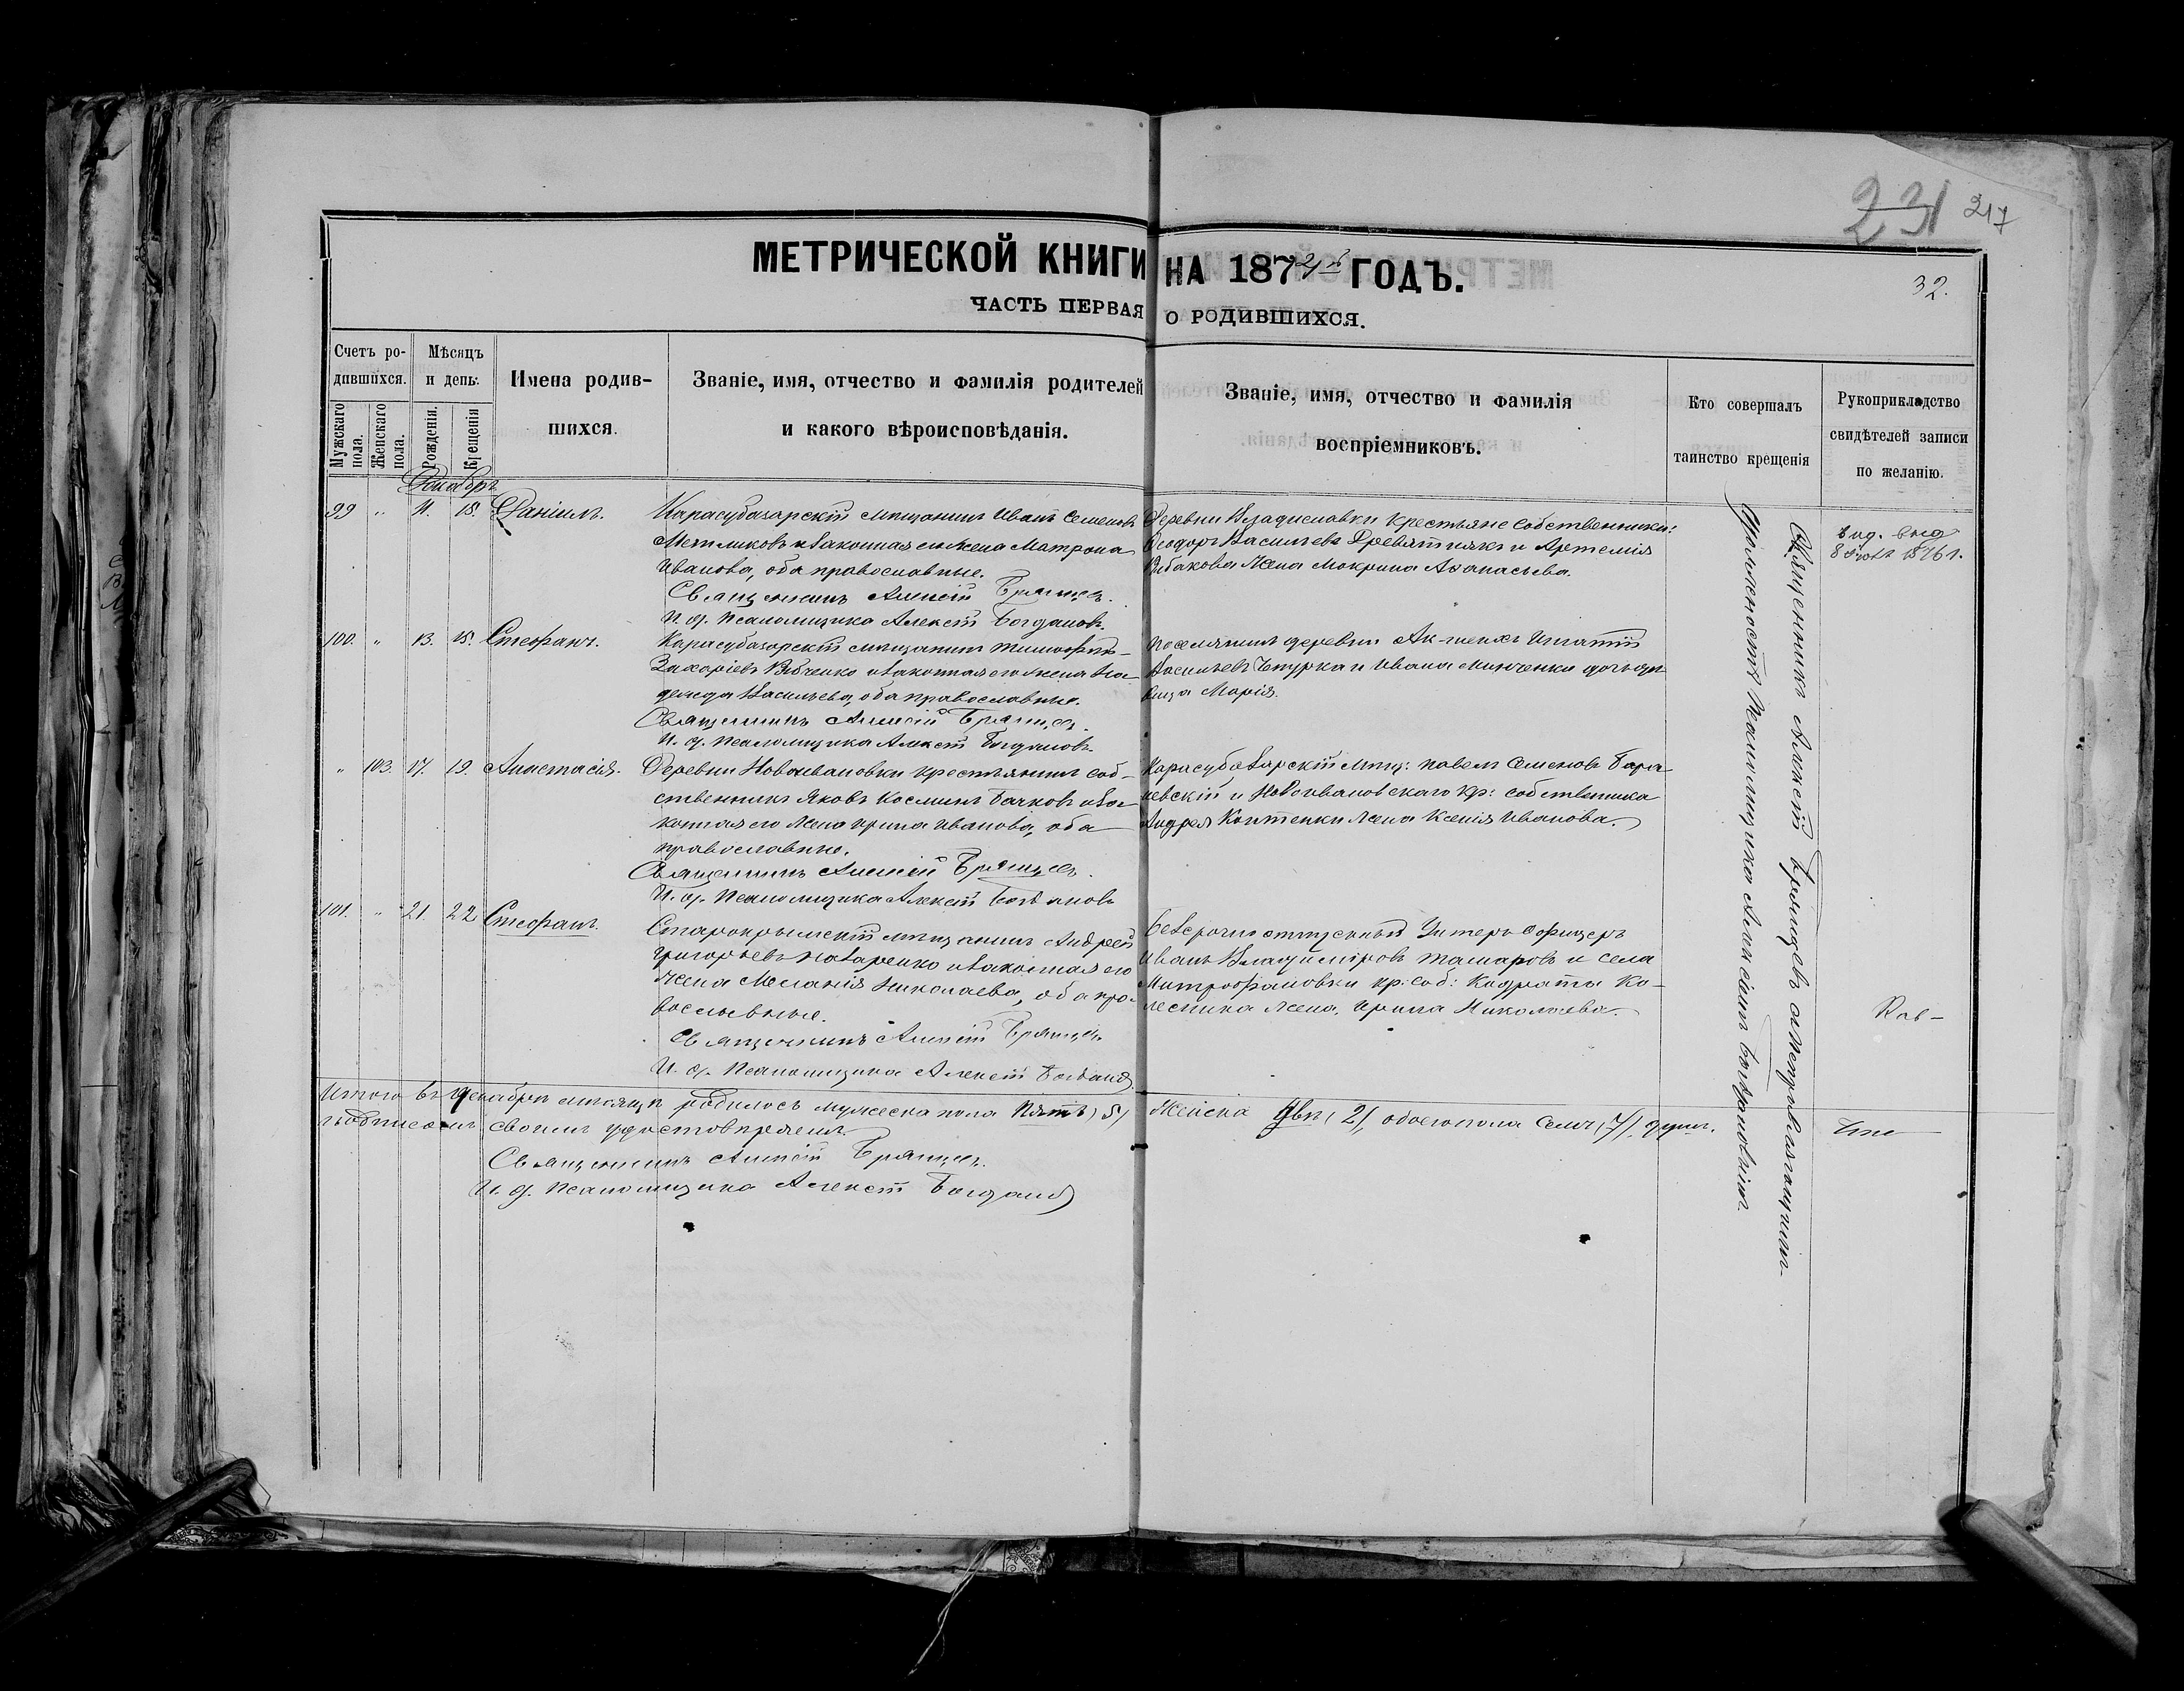 231 217
МЕТРИЧЕСКОЙ КНИГИ НА 1872й ГОДЪ.
32.
ЧАСТЬ ПЕРВАЯ О РОДИВШИХСЯ.
Счетъ родившихся.
Мужскаго пола.
Женскаго пола.
Мѣсяцъ и день.
Рожденія.
Крещенія
Имена родившихся.
Званіе, имя, отчество и фамилія родителей
и какого вѣроисповѣданія.
Званіе, имя, отчество и фамилія
воспріемниковъ.
Кто совершалъ
таинство крещенія
Рукоприкладство
свидѣтелей записи
по желанію.
Декабрь
99 " 11. 15. Даніилъ.
Карасубазарскій мѣщанинъ Иванъ Семеновъ
Метликовъ и законная его жена Матрона
Иванова, оба православные.
Священникъ Алексій Брянцевъ.
И. д. Псаломщика Алексій Богдановъ.
Деревни Владиславки крестьяне собственники:
Ѳеодоръ Васильевъ Девятнякъ и Артемія
Рыбакова жена Мокрина Аѳанасьева.
выд. вид
8 1876 г.
100. " 13. 15. Стефанъ.
Карасубазарскій мѣщанинъ Тимофей
Захаріевъ Рябченко и законная его жена На-
дежда Васильева, оба православные.
Священникъ Алексій Брянцевъ.
И. д. Псаломщика Алексій Богдановъ.
Поселянинъ деревни Ак-шеихъ Игнатій
Васильевъ Чепурка и Ивана Минченки дочь дѣ-
вица Марія.
" 103. 17. 19. Анастасія.
Деревни Новоивановки крестьянинъ соб-
ственникъ Яковъ Косминъ Бачковъ и за-
конная его жена Ирина Иванова, оба
православные.
Священникъ Алексій Брянцевъ.
И. д. Псаломщика Алексій Богдановъ
Карасубазарскій мѣщ: Павелъ Семеновъ Бара-
невскій и Новоивановскаго кр: собственника
Андрея Коптенки жена Ксенія Иванова.
101. " 21. 22 Стефанъ.
Старокрымскій мѣщанинъ Андрей
Григорьевъ Назаренко и законная его
жена Меланія Николаева, оба пра-
вославные.
Священникъ Алексій Брянцевъ
И. д. Псаломщика Алексій Богдановъ.
Безсрочно отпускный Унтеръ Офицеръ
Иванъ Владиміровъ Тамаровъ и села
Митрофановки кр: соб: Кодрата Ко-
лесника жена, Ирина Николаева.
Священникъ Алексій Брянцевъ съ исправляющимъ
должность Псаломщика Алексіемъ Богдановымъ
Итого въ декабрѣ мѣсяцѣ родилось мужеска пола пять (5) женска двѣ (2), обоего пола семь (7), душъ.
подписомъ своимъ удостовѣряемъ.
Священникъ Алексій Брянцевъ.
И. д. Псаломщика Алексій Богдановъ